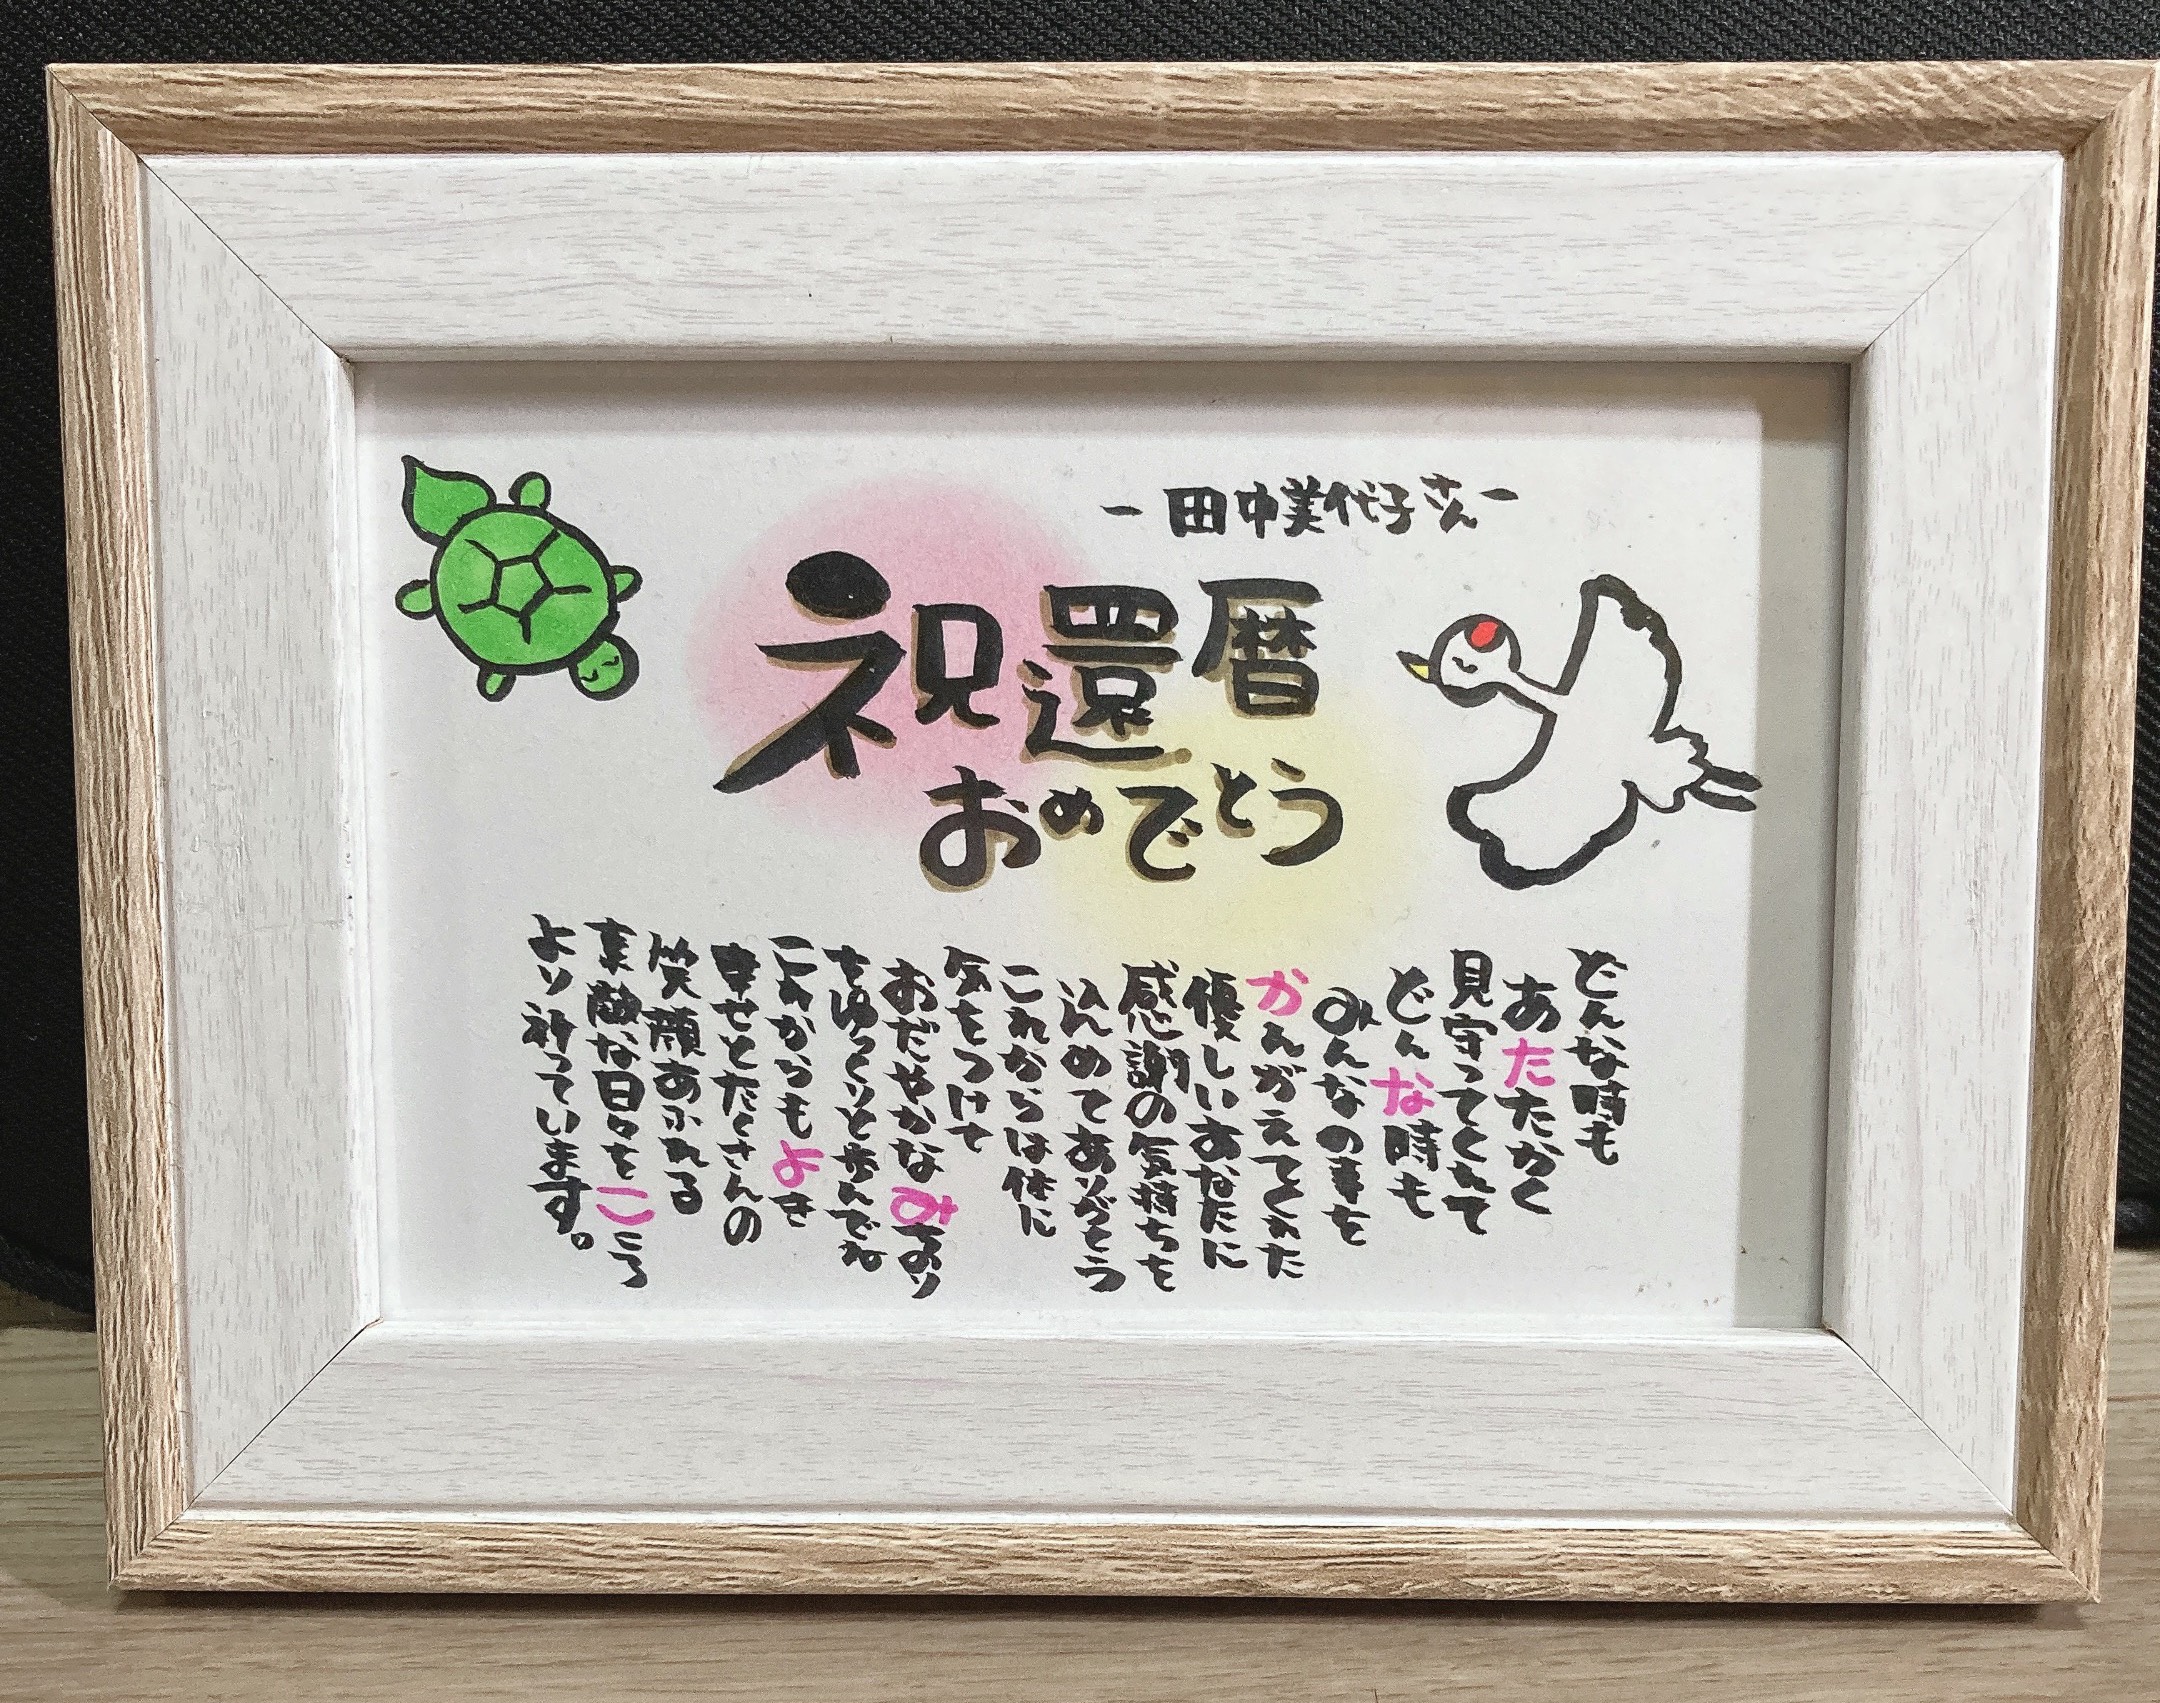 －田中美代子さん－
祝還暦
おめでとう
どんな時も
あたたかく
見守ってくれて
どんな時も
みんなの事を
かんがえてくれた
優しいあなたに
感謝の気持ちを
込めてありがとう
これからは体に
気をつけて
おだやかなみちのり
をゆっくりと歩んでね
これからもよき
幸せとたくさんの
笑顔あふれる
素敵な日々をこころ
より祈っています。